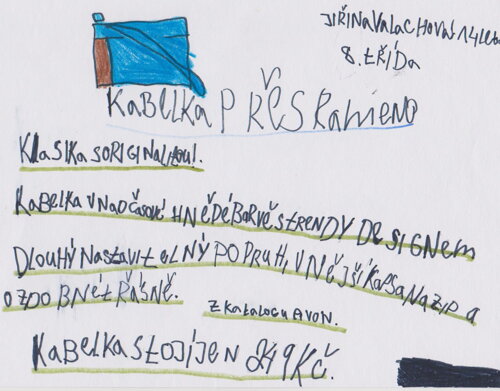 JIŘINA VALACHOVÁ 14 let
8. tŘÍDA
KABELKA PŘES RAMENO
KLASIKA S ORIGINALITOU!
KABELKA V NADČASOVÉ HNĚDÉ BARVĚ S TRENDY DESIGNEM
DLOUHÝ NASTAVITELNÝ POPRUH, VNĚJŠÍ KAPSA NA ZIP A
OZDOBNÉ TŘÁSNĚ.
Z KATALOGU AVON.
KABELKA STOJÍ JEN 249 KČ.